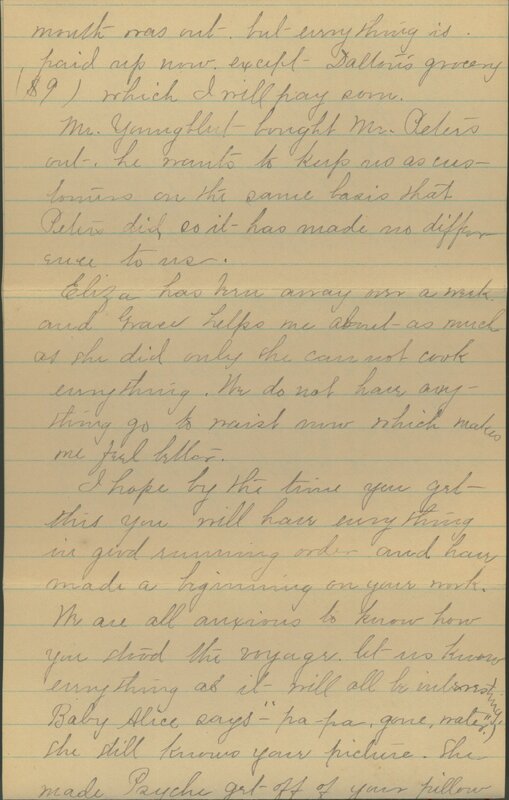 month was out. but everything is
paid up now. except Dalton's grocery
($9) which I will pay soon.
Mr. Youngblut bought Mr. Peters
out. he wants to keep us as cus-
tomers on the same basis that
Peters did, so it has made no differ-
ence to us.
Eliza has been away over a week.
and Grace helps me about as much
as she did only she can not cook
everything. We do not have any-
thing go to waist now which makes
me feel better.
I hope by the time you get
this you will have everything
in good running order and have
made a biginning on your work.
We are all anxious to know how
you stood the voyage. let us know
everything as it will all be interesting
Baby Alice says "pa-pa, gone, water".
She still knows your picture. She
made Psyche get off of your pillow